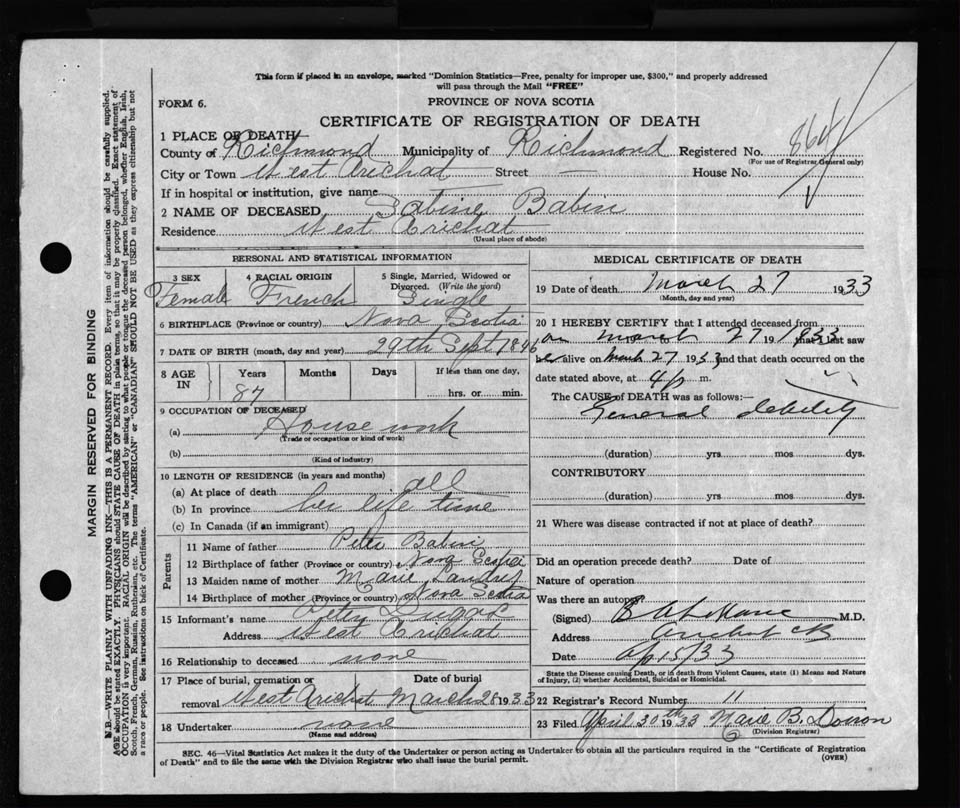 This form if placed in an envelope, marked "Dominion Statistics—Free, penalty for improper use, $300," and properly addressed
will pass through the Mail "FREE"
FORM 6.
PROVINCE OF NOVA SCOTIA
CERTIFICATE OF REGISTRATION OF DEATH
1 PLACE OF DEATH
County of Richmond Municipality of Richmond Registered No. 864
(For use of Registrar General only)
City or Town West Arichat Street — House No.
If in hospital or institution, give name
2 NAME OF DECEASED Sabine Babin
Residence West Arichat
(Usual place of abode)
PERSONAL AND STATISTICAL INFORMATION
3 SEX 4 RACIAL ORIGIN 5 Single, Married, Widowed or Divorced. (Write the word)
Female French Single
6 BIRTHPLACE (Province or country) Nova Scotia
7 DATE OF BIRTH (month, day and year) 29th Sept 1846
8 AGE IN Years Months Days If less than one day,
87 hrs. or min.
9 OCCUPATION OF DECEASED
(a) House work
(Trade or occupation or kind of work)
(b)
(Kind of industry)
10 LENGTH OF RESIDENCE (in years and months)
(a) At place of death all
(b) In province her life time
(c) In Canada (if an immigrant)
Parents
11 Name of father Peter Babin
12 Birthplace of father (Province or country) Nova Scotia
13 Maiden name of mother Marie Landry
14 Birthplace of mother (Province or country) Nova Scotia
15 Informant's name Peter
Address West Arichat
16 Relationship to deceased none
17 Place of burial, cremation or removal Date of burial
West Arichat March 28 1933
18 Undertaker none
(Name and address)
MEDICAL CERTIFICATE OF DEATH
19 Date of death March 27 1933
(Month, day and year)
20 I HEREBY CERTIFY that I attended deceased from
on March 27 1933 that I last saw
her alive on March 27 1933 and that death occurred on
date stated above, at 4 p m.
The CAUSE of DEATH was as follows:—
General debility
(duration) yrs. mos. dys.
CONTRIBUTORY
(duration) yrs. mos. dys.
21 Where was disease contracted if not at place of death?
Did an operation precede death? Date of
Nature of operation
Was there an autopsy?
(Signed) M.D.
Address Arichat CB
Date Ap 15/33
State the Disease causing Death, or in death from Violent Causes, state (1) Means and Nature
of Injury, (2) whether Accidental, Suicidal or Homicidal.
22 Registrar's Record Number 11
23 Filed April 30th 1933 Marie B. Doiron
(Division Registrar)
SEC. 46—Vital Statistics Act makes it the duty of the Undertaker or person acting as Undertaker to obtain all the particulars required in the "Certificate of Registration
of Death" and to file the same with the Division Registrar who shall issue the burial permit.
(OVER)
MARGIN RESERVED FOR BINDING
N.B.—WRITE PLAINLY WITH UNFADING INK—THIS IS A PERMANENT RECORD. Every item of information should be carefully supplied.
AGE should be stated EXACTLY. PHYSICIANS should STATE CAUSE OF DEATH in plain terms, so that it may be properly classified. Exact statement of
OCCUPATION is very important. RACIAL ORIGIN will be described by stating to what people or tongue the deceased person belonged, whether English, Irish,
Scotch, French, German, Russian, Ruthenian, etc. The terms "AMERICAN" or "CANADIAN" SHOULD NOT BE USED as they express citizenship but not
a race or people. See instructions on back of Certificate.